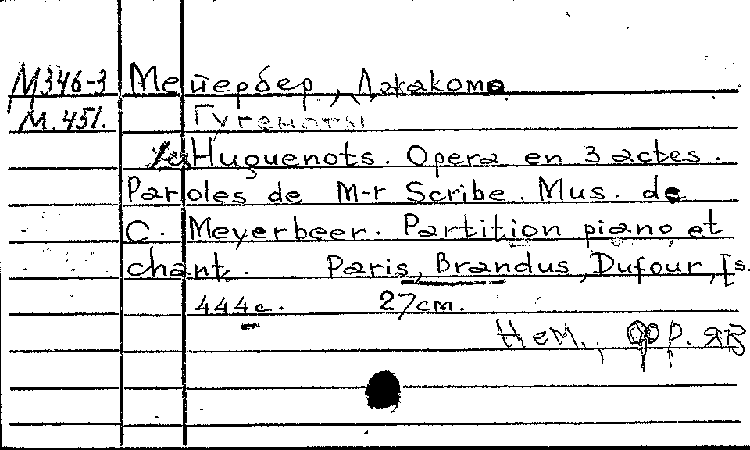 М346-3 Мейербер, Джакомо
М.451. Гугеноты
Les Huguenots. Opera en 3 actes.
Paroles de M-r Scribe. Mus. de
C. Meyerbeer. Partition piano et
chant. Paris, Brandus, Dufour, [s.
444с. 27см.
Нем., фр. яз